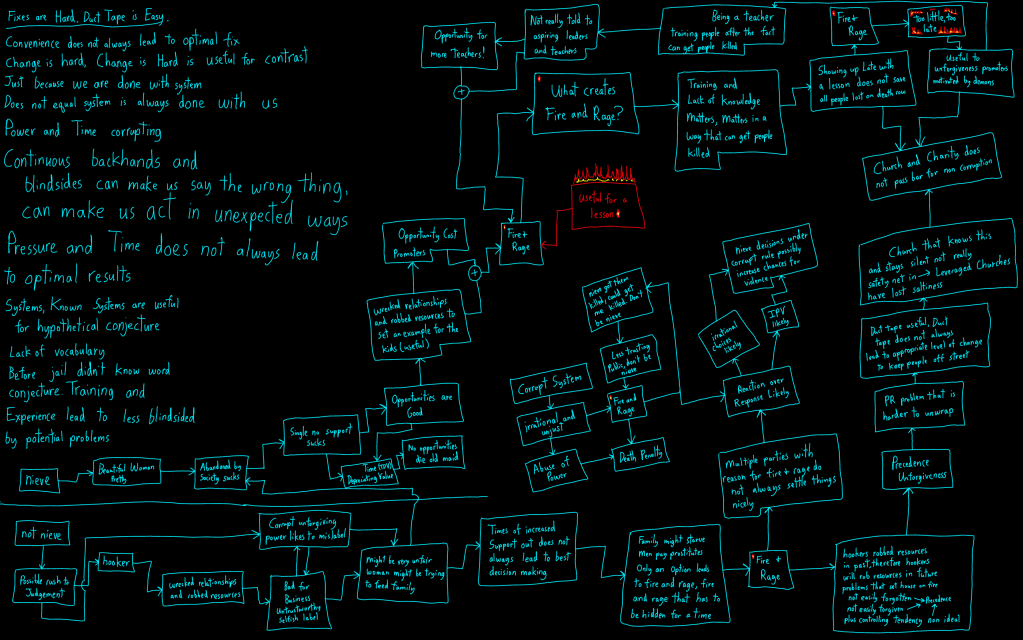 Fixes are Hard, Duct Tape is Easy.
Convenience does not always lead to optimal fix
Change is hard, Change is Hard is useful for contrast
Just because we are done with system
Does not equal system is always done with us
Power and Time corrupting
Continuous backhands and
blindsides can make us say the wrong thing,
can make us act in unexpected ways
Pressure and Time does not always lead
to optimal results
Systems, Known Systems are useful
for hypothetical conjecture
Lack of vocabulary
Before jail didn't know word
conjecture. Training and
Experience lead to less blindsided
by potential problems
Opportunity for
more Teachers!
Not really told to
aspiring leaders
and teachers
Being a teacher
training people after the fact
can get people killed
Fire+
Rage
Too little, too
late
What creates
Fire and Rage?
Training and
Lack of Knowledge
Matters, Matters in a
way that can get people
killed
Showing up Late with
a lesson does not save
all people lost on death row
Useful to
unforgiveness promoters
motivated by demons
Church and Charity does
not pass bar for non corruption
Useful for a
lesson
Fire+
Rage
Opportunity Cost
Promoters
Wrecked relationships
and robbed resources to
set an example for the
kids (useful)
Opportunities are
Good
Single no support
sucks
Time
Depreciating Value
No opportunities
die old maid
nieve
Beautiful Woman
Pretty
Abandoned by
Society sucks
nieve got them
killed, could get
me killed. Don't
be nieve
Less trusting
Public, don't be
nieve
Corrupt System
irrational and
unjust
Fire and
Rage
Abuse of
Power
Death Penalty
nieve decisions under
corrupt rule possibly
increase chances for
violence
irrational
choices
likely
IPV
likely
Reaction over
Response Likely
Multiple parties with
reason for fire + rage do
not always settle things
nicely
Church that knows this
and stays silent not really
safety net in → Leveraged Churches
have lost saltiness
Duct tape useful, Duct
tape does not always
lead to appropriate level of change
to keep people off street
PR problem that is
harder to unwrap
Precedence
Unforgiveness
not nieve
Possible rush to
Judgement
hooker
wrecked relationships
and robbed resources
Corrupt unforgiving
power likes to mislabel
Bad for
Business
Untrustworthy
Selfish label
Might be very unfair
woman might be trying
to feed family
Times of increased
Support out does not
always lead to best
decision making
Family might starve
Men pay prostitutes
Only an Option leads
to fire and rage, fire
and rage that has to
be hidden for a time
Fire +
Rage
hookers robbed resources
in past, therefore hookers
will rob resources in future
problems that set house on fire
not easily forgotten → Precedence
not easily forgiven
plus controlling tendency non ideal